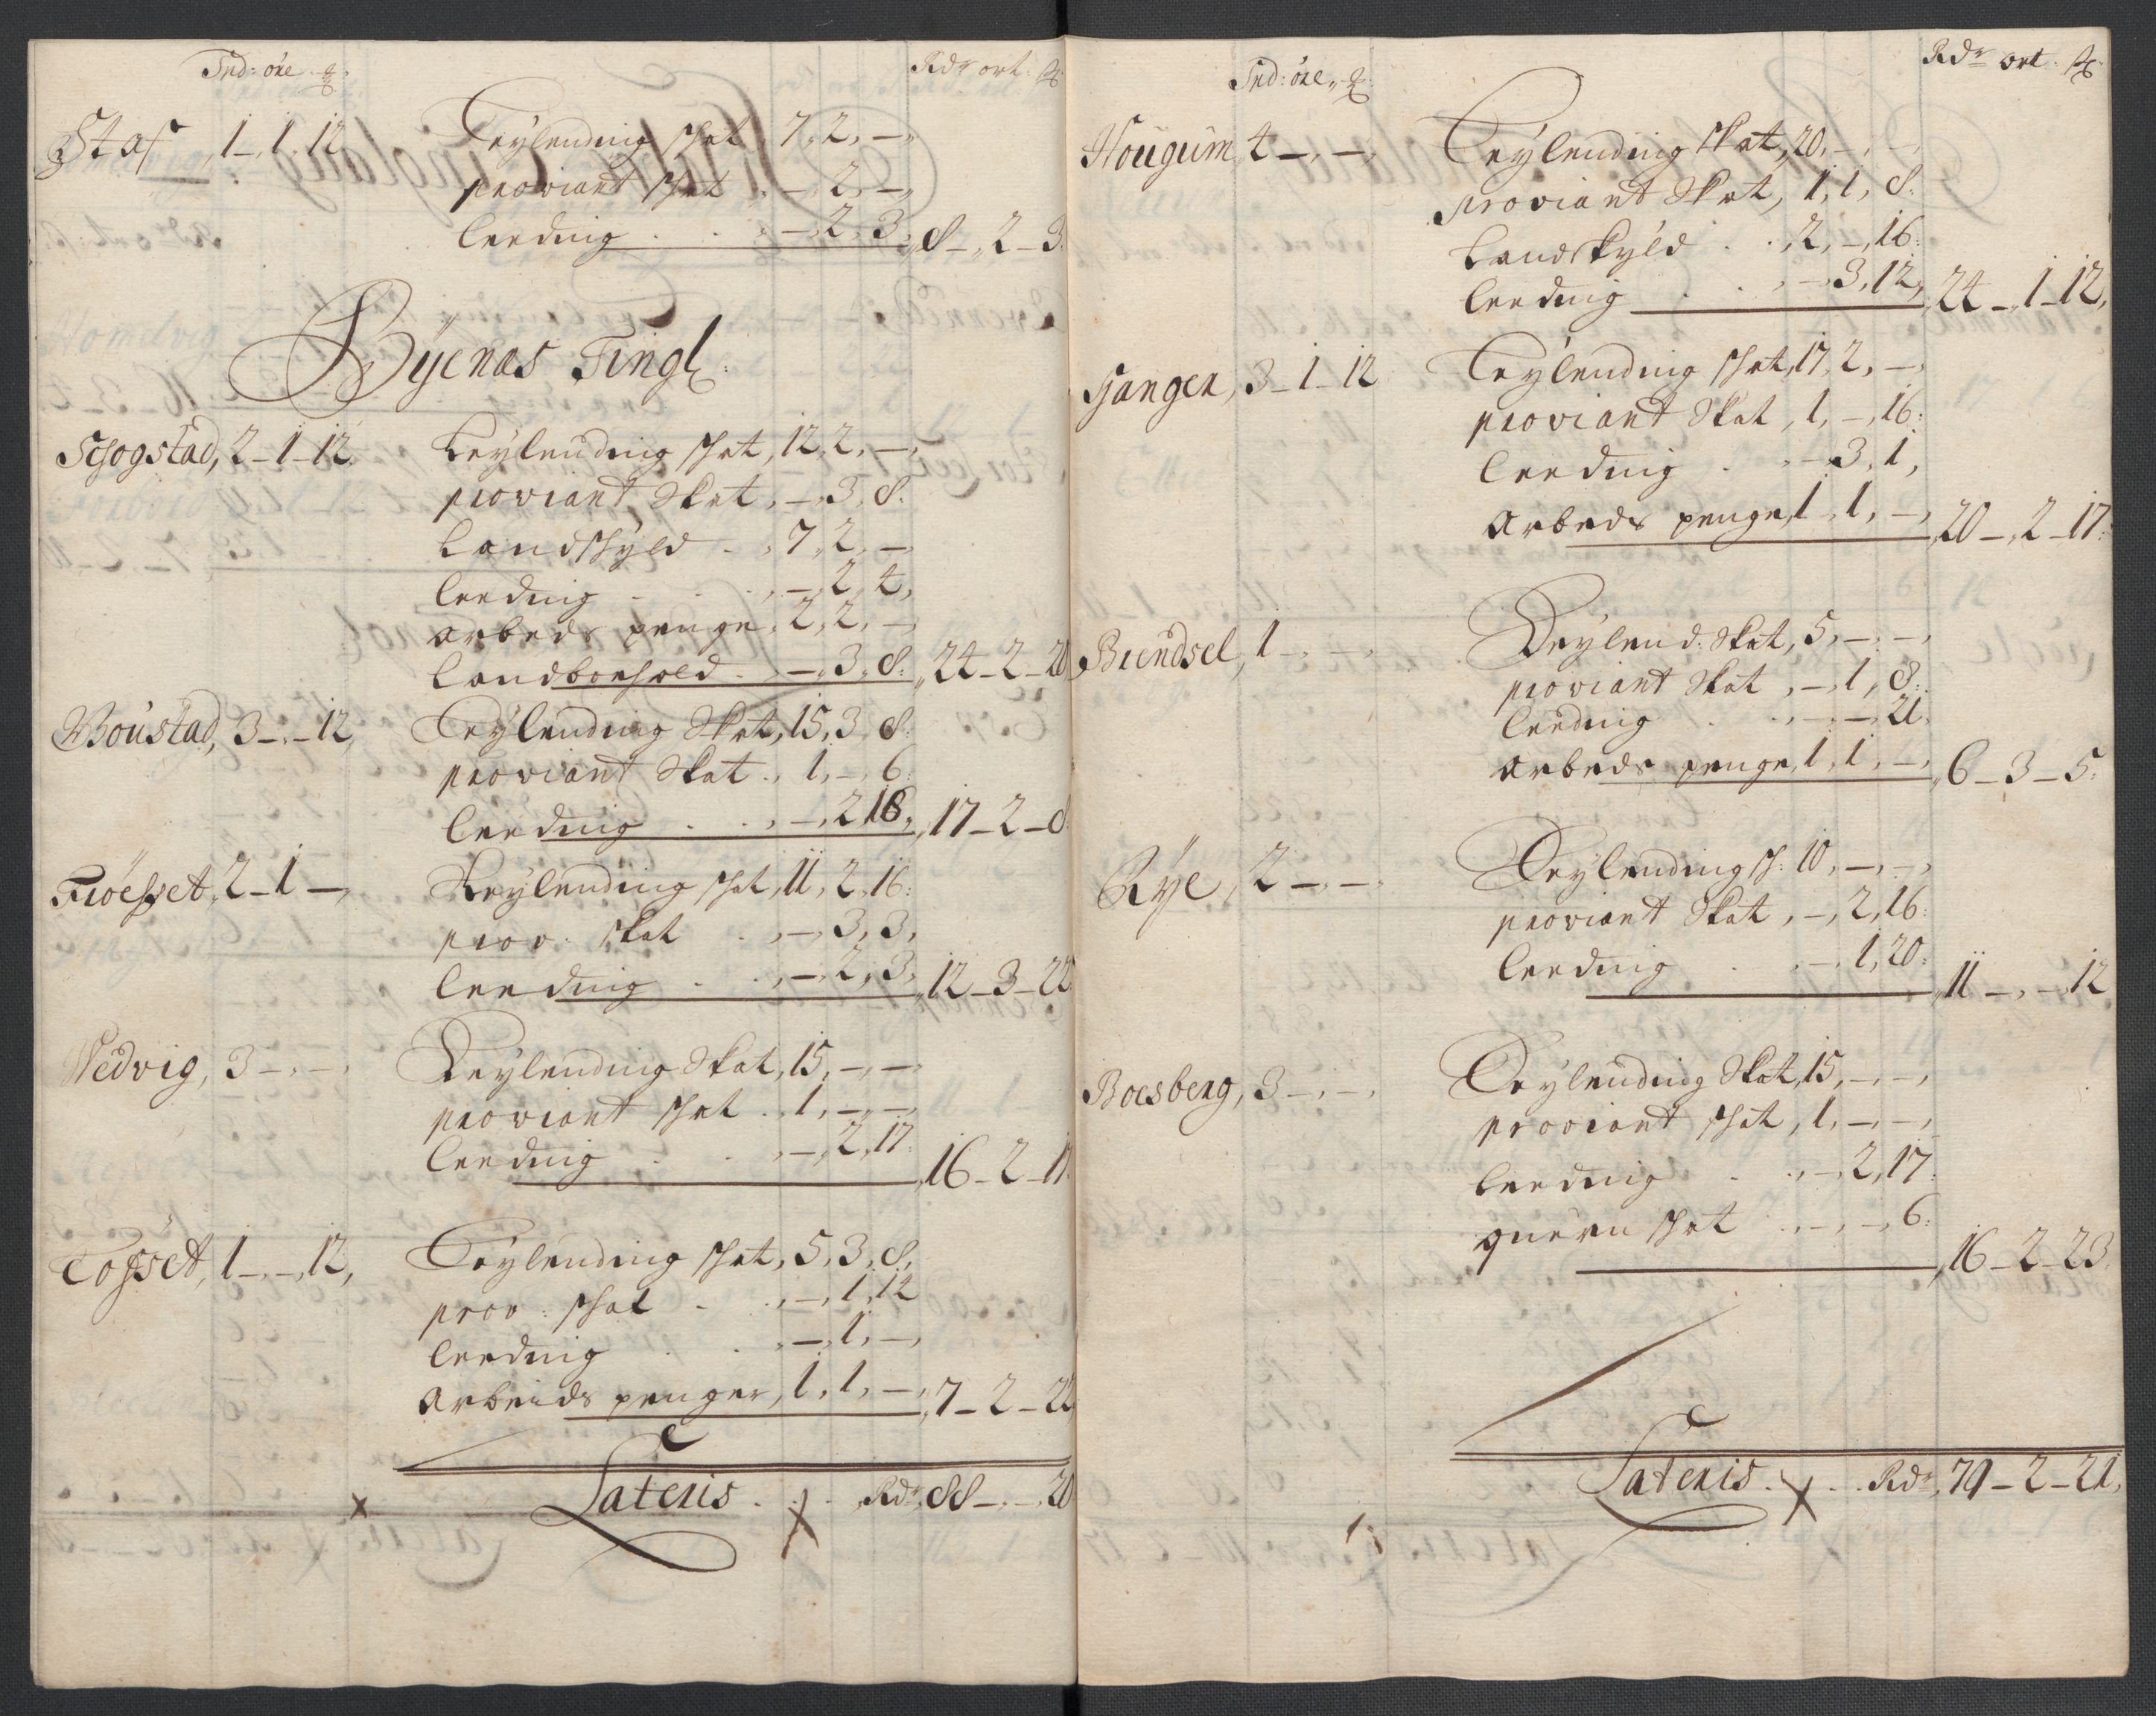 Spd: öre ꝑ.
Rdr ort: ꞵ
Staf, 1 – 1. 12 Leylending schat, 7, 2, –,
proviant schat . – 2, –,
Leeding . . – 2, 3, 8 – 2 – 3.
Byenæs Tingl:
Schogstad, 2 – 1 – 12. Leylending schat, 12, 2, –,
proviant Skat, –, 3, 8.
Landschyld . , 7, 2, –
Leeding . . , –, 2, 4,
arbeds penge, 2, 2, –,
Landboehold . –, 3, 8. 24 – 2 – 20
Boustad, 3 – „ – 12, Leylending Skat, 15, 3, 8.
proviant Skat . , 1, –, 6.
Leeding . . , –, 2, 18, 17 – 2 – 8
Fiöesset, 2 – 1 –, Leylending schat, 11, 2, 16.
prov. skat . , –, 3, 3,
Leeding . . , –, 2, 3, 12 – 3 – 22
Wedvig, 3 – „ – Leylending Skat, 15, –, –
proviant schat . , 1, –, –,
Leeding . . –, 2, 17. 16 – 2 – 17.
Tofsset, 1 – „ – 12, Leylending schat, 5, 3, 8,
prov: schat . , –, 1, 12
Leeding . . , –, 1, –,
arbeids penger, 1, 1, –, 7 – 2 – 22
Lateris . . . Rdr, 88 – „ – 20
Spd: öre „ ꝑ.
Rdr ort. ꞵ.
Hougum, 4 – „ –, Leylending Skat, 20, –, –
proviant Skat, 1, 1, 8.
Landskyld . . , 2, –, 16.
Leeding . . , – 3, 12, 24 – 1 – 12,
Hangen, 3 – 1 – 12 Leylending schat, 17, 2, –,
proviant Skat, 1, –, 16.
Leeding . , – 3, 1,
Arbeds penge, 1, 1, –, 20 – 2 – 17.
Biendsel, 1 – „ – Leylend. Skat, 5, –, –,
proviant Skat, –, 1, 8.
Leeding . . , –, –, 21.
arbeds penge, 1, 1, –, 6 – 3 – 5.
Rye, 2 – „ – Leylending sch: 10, –, –,
proviant Skat, –, 2, 16.
Leeding . . –, 1, 20. 11 – „ – 12
Boesberg, 3 – „ –, Leylending Skat, 15, –, –,
proviant schat, 1, –, –,
Leeding . , –, 2, 17.
quern schat . , –, –, 6. 16 – 2 – 23.
Lateris . . . Rdr, 79 – 2 – 21,